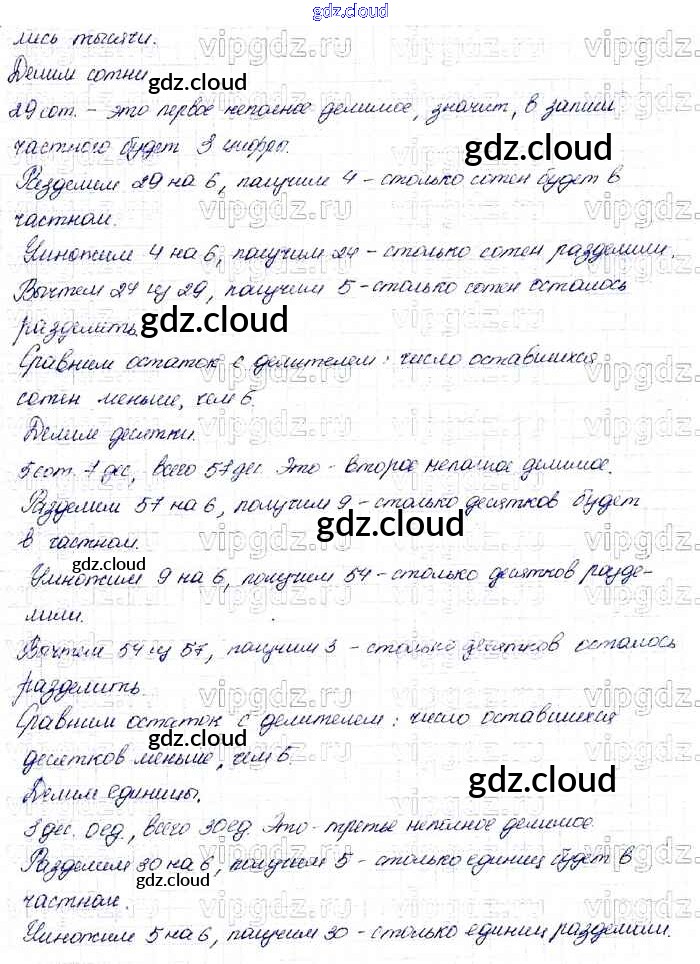 gdz.cloud
лись тысячи.
Делим сотни.
29 сот. - это первое неполное делимое, значит, в записи
частного будет 3 цифры.
Разделим 29 на 6, получим 4 - столько сотен будет в
частном.
Умножим 4 на 6, получим 24 - столько сотен разделили.
Вычтем 24 из 29, получим 5 - столько сотен осталось
разделить.
Сравним остаток с делителем: число оставшихся
сотен меньше, чем 6.
Делим десятки.
5 сот. 7 дес., всего 57 дес. Это - второе неполное делимое.
Разделим 57 на 6, получим 9 - столько десятков будет
в частном.
Умножим 9 на 6, получим 54 - столько десятков разде-
лили.
Вычтем 54 из 57, получим 3 - столько десятков осталось
разделить.
Сравним остаток с делителем: число оставшихся
десятков меньше, чем 6.
Делим единицы.
3 дес. 0 ед., всего 30 ед. Это - третье неполное делимое.
Разделим 30 на 6, получим 5 - столько единиц будет в
частном.
Умножим 5 на 6, получим 30 - столько единиц разделили.